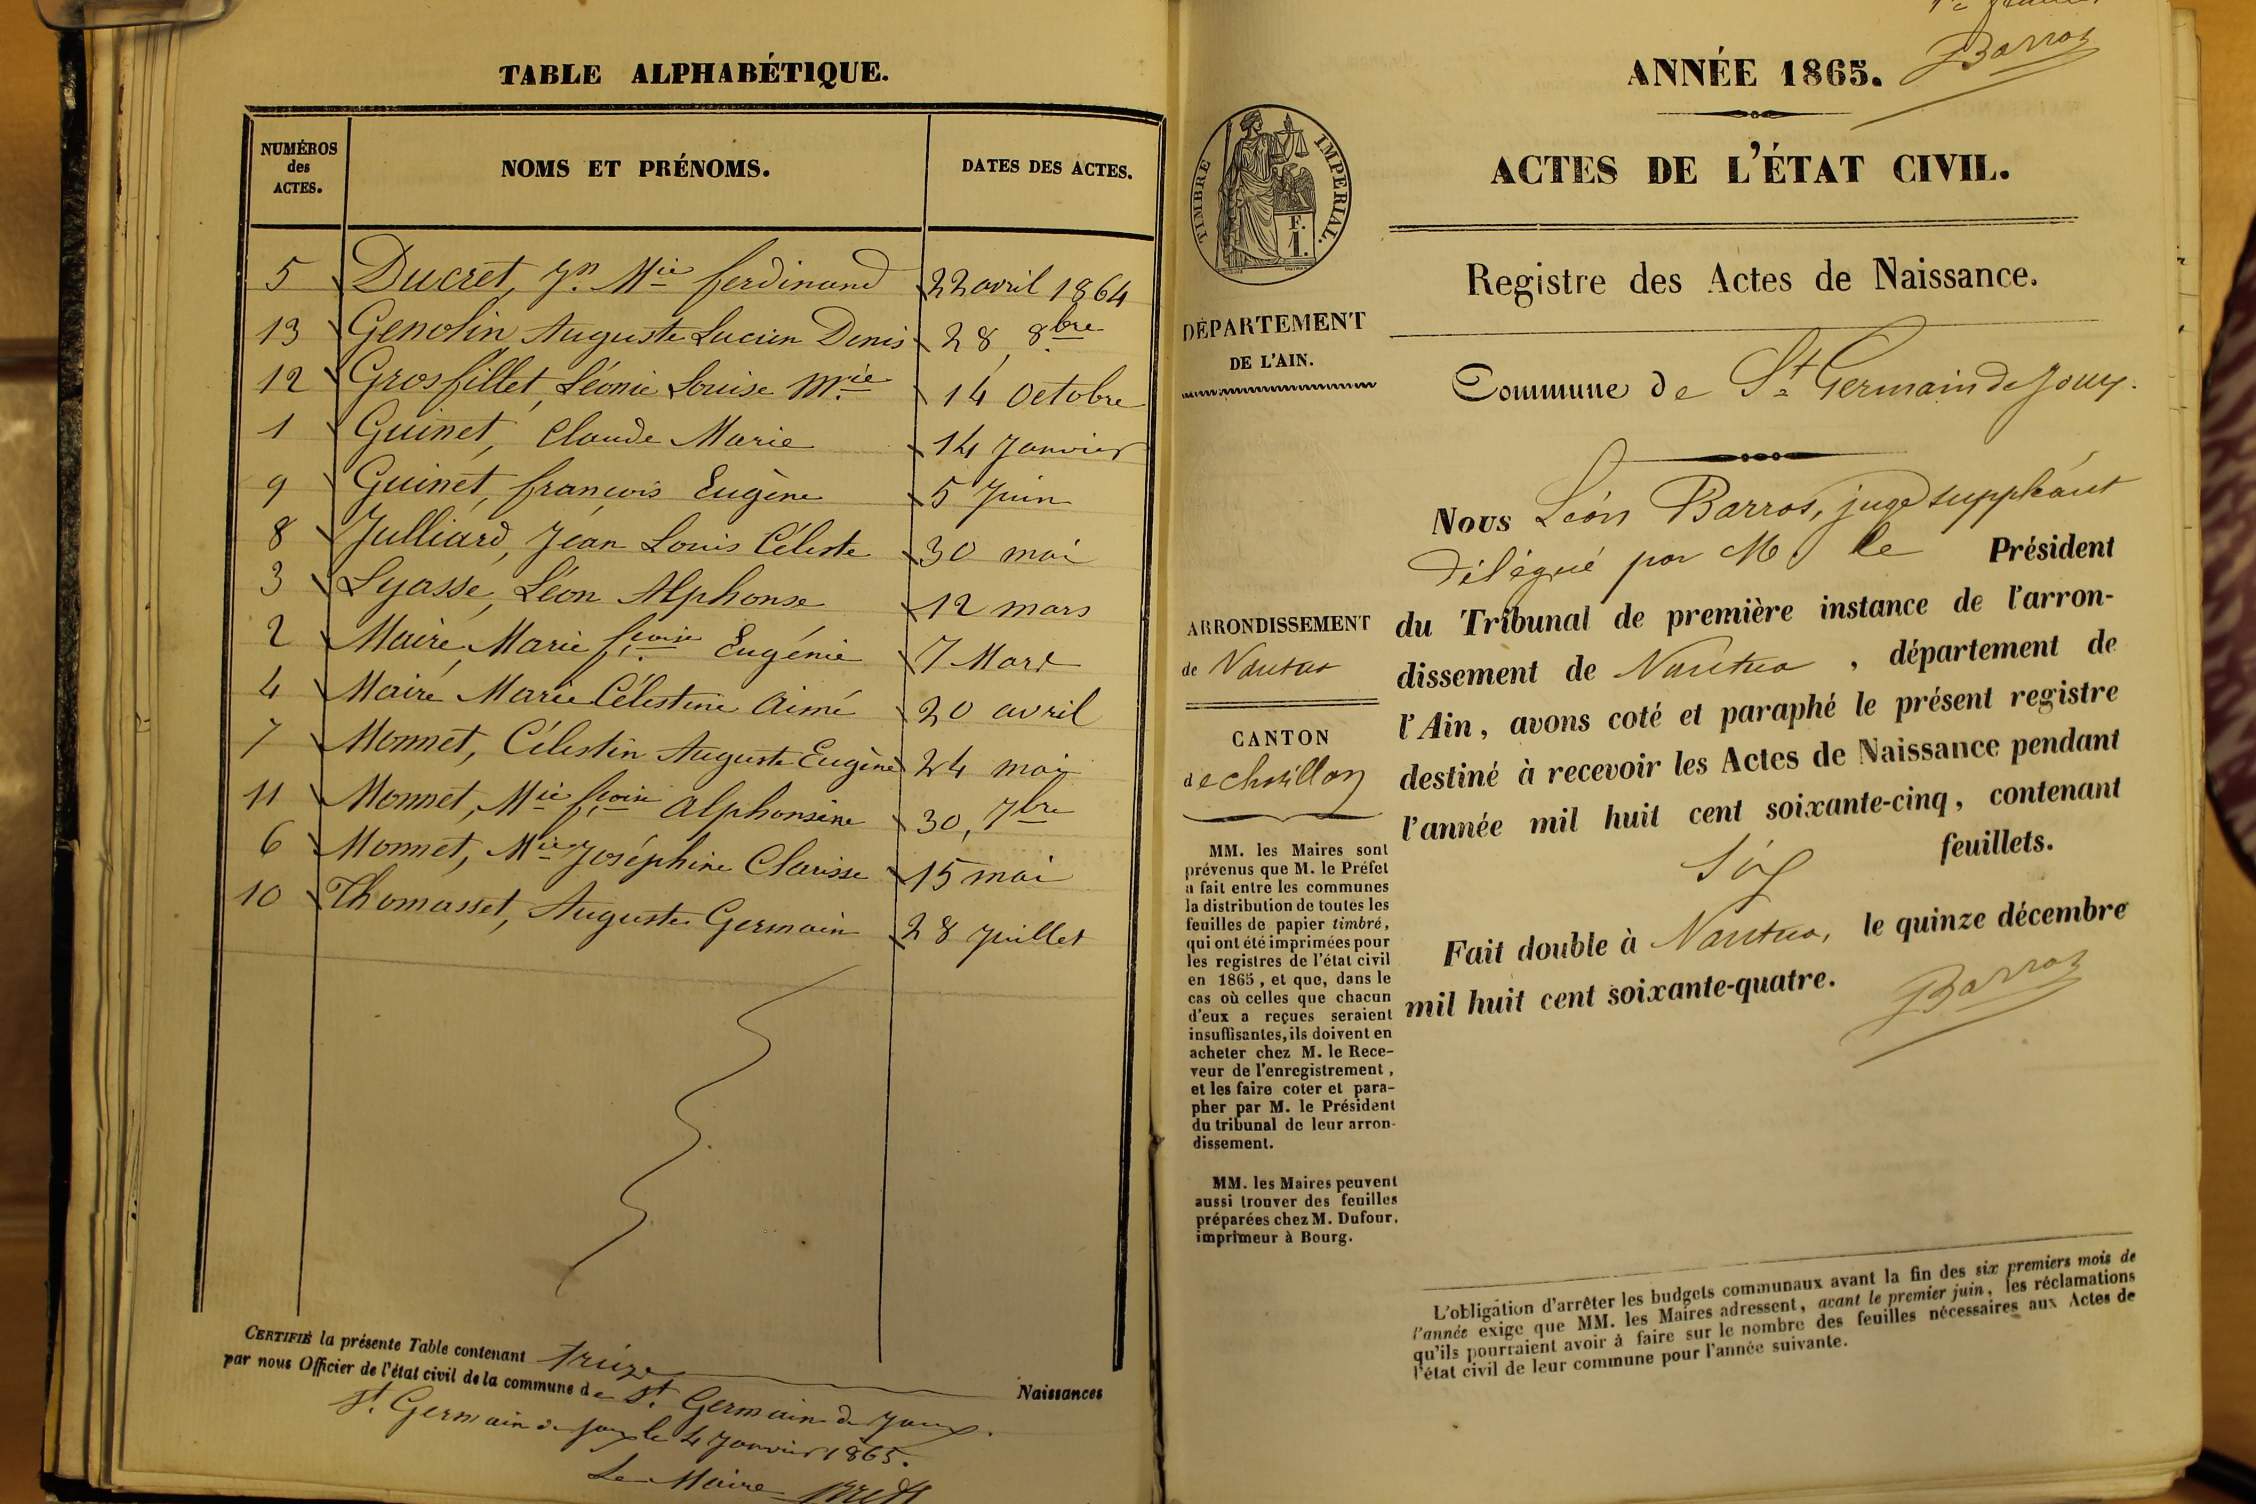 TABLE ALPHABÉTIQUE.
NUMÉROS des ACTES.
NOMS ET PRÉNOMS.
DATES DES ACTES.
5 Ducret, Jn Mie ferdinand 22 avril 1864
13 Genolin Auguste Lucien Denis 28, 8bre
12 Grosfillet, Léonie Louise Mrie 14 Octobre
1 Guinet, Claude Marie 14 Janvier
9 Guinet, françois Eugène 5 Juin
8 Julliard, Jean Louis Céleste 30 mai
3 Lyasse, Léon Alphonse 12 mars
2 Maire, Marie fçoise Eugénie 7 Mars
4 Maire Marie Célestine Aimé 20 avril
7 Monnet, Célestin Auguste Eugène 24 mai
11 Monnet, Mie fçoise Alphonsine 30, 7bre
6 Monnet, Mie Joséphine Clarisse 15 mai
10 Thomasset, Auguste Germain 28 juillet
CERTIFIÉ la présente Table contenant treize Naissances
par nous Officier de l'état civil de la commune de St. Germain de Joux.
St. Germain de Joux le 4 Janvier 1865.
Le Maire
Barros
ANNÉE 1865.
TIMBRE IMPÉRIAL.
F. 1.
ACTES DE L'ÉTAT CIVIL.
Registre des Actes de Naissance.
DÉPARTEMENT
DE L'AIN.
Commune de St Germain de Joux.
Nous Léon Barros, juge suppléant
délégué par M. le Président
du Tribunal de première instance de l'arron-
dissement de Nantua, département de
l'Ain, avons coté et paraphé le présent registre
destiné à recevoir les Actes de Naissance pendant
l'année mil huit cent soixante-cinq, contenant
six feuillets.
Fait double à Nantua, le quinze décembre
mil huit cent soixante-quatre.
Barros
ARRONDISSEMENT
de Nantua
CANTON
de chatillon
MM. les Maires sont
prévenus que M. le Préfet
a fait entre les communes
la distribution de toutes les
feuilles de papier timbré,
qui ont été imprimées pour
les registres de l'état civil
en 1865, et que, dans le
cas où celles que chacun
d'eux a reçues seraient
insuffisantes, ils doivent en
acheter chez M. le Rece-
veur de l'enregistrement,
et les faire coter et para-
pher par M. le Président
du tribunal de leur arron-
dissement.
MM. les Maires peuvent
aussi trouver des feuilles
préparées chez M. Dufour,
imprimeur à Bourg.
L'obligation d'arrêter les budgets communaux avant la fin des six premiers mois de
l'année exige que MM. les Maires adressent, avant le premier juin, les réclamations
qu'ils pourraient avoir à faire sur le nombre des feuilles nécessaires aux Actes de
l'état civil de leur commune pour l'année suivante.